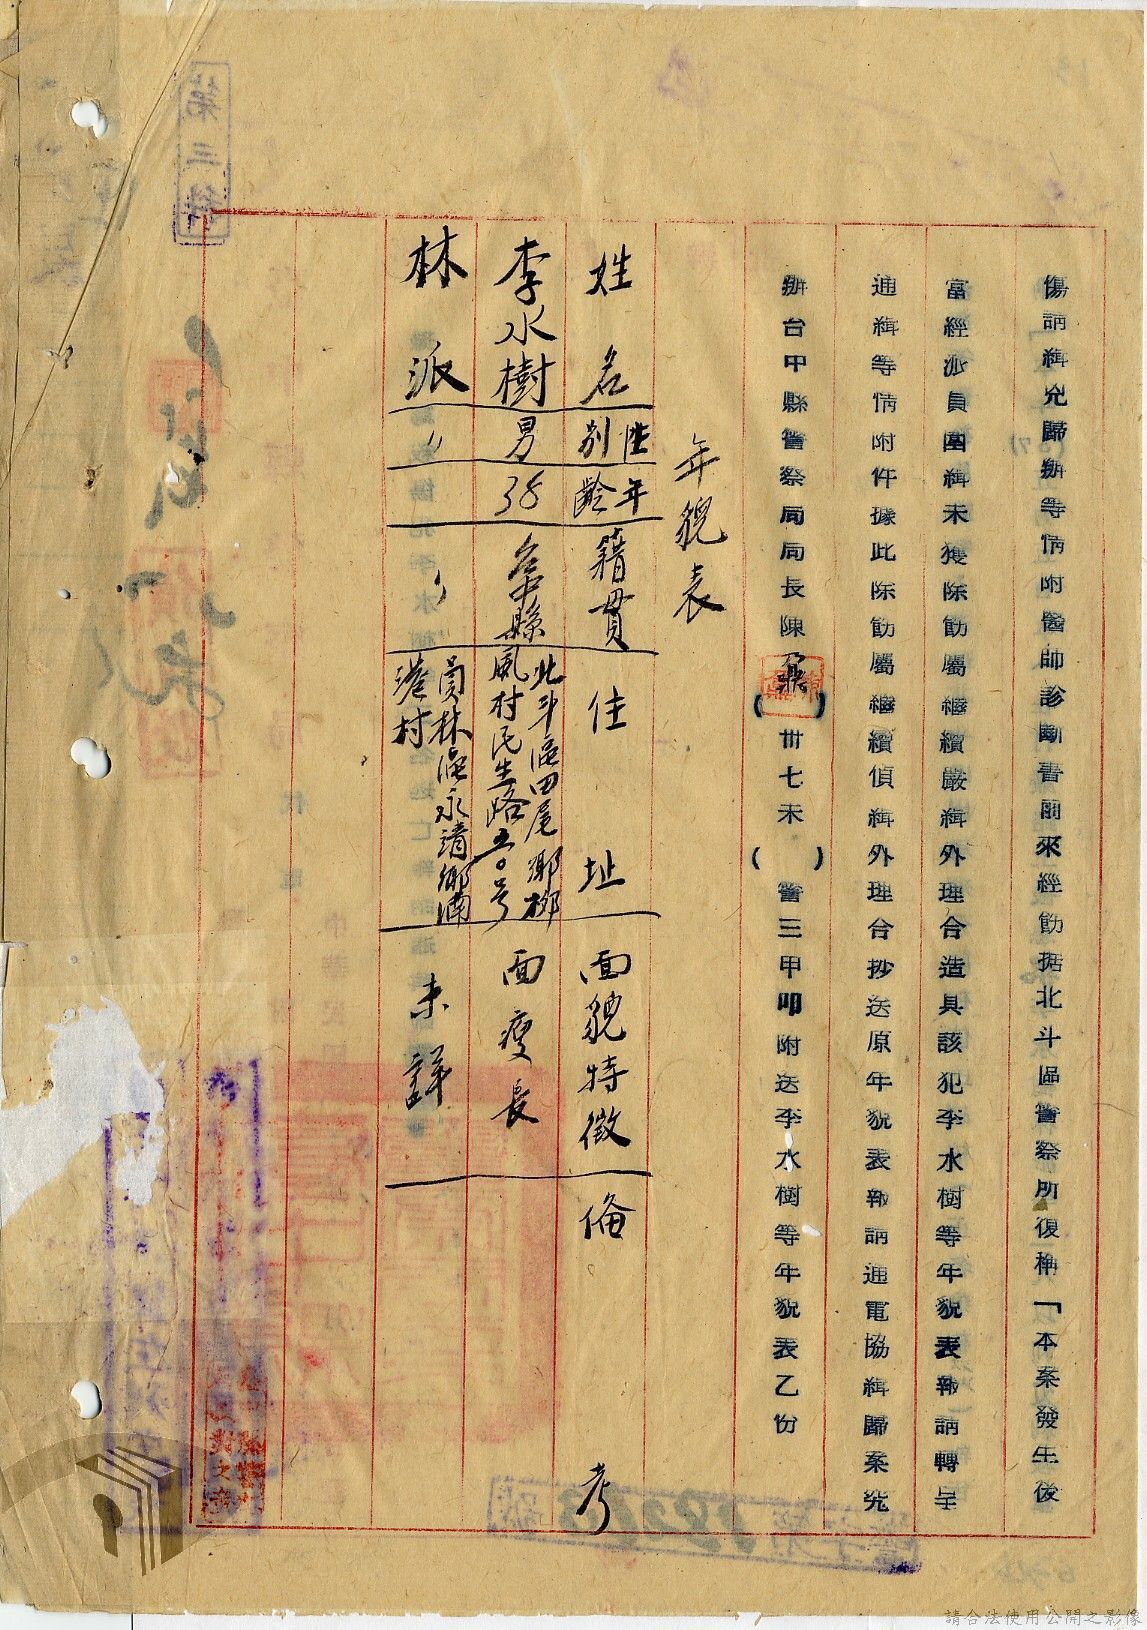 傷請緝兇歸辦等情附醫師診斷書前來經飭据北斗區警察所復稱「本案發生後
當經派員圍緝未獲除飭屬繼續嚴緝外理合造具該犯李水樹等年貌表報請轉呈
通緝等情附件據此除飭屬繼續偵緝外理合抄送原年貌表報請通電協緝歸案究
辦台中縣警察局局長陳(　)卅七未(　)警三甲叩附送李水樹等年貌表乙份
年貌表
姓名 性別 年齡 籍貫 住址 面貌特徵 備考
李水樹 男 38 台中縣 北斗區田尾鄉柳鳳村民生路五〇号 面瘦長
林派 〃 〃 員林區永靖鄉湳港村 未詳
第三科
請合法使用公開之影像